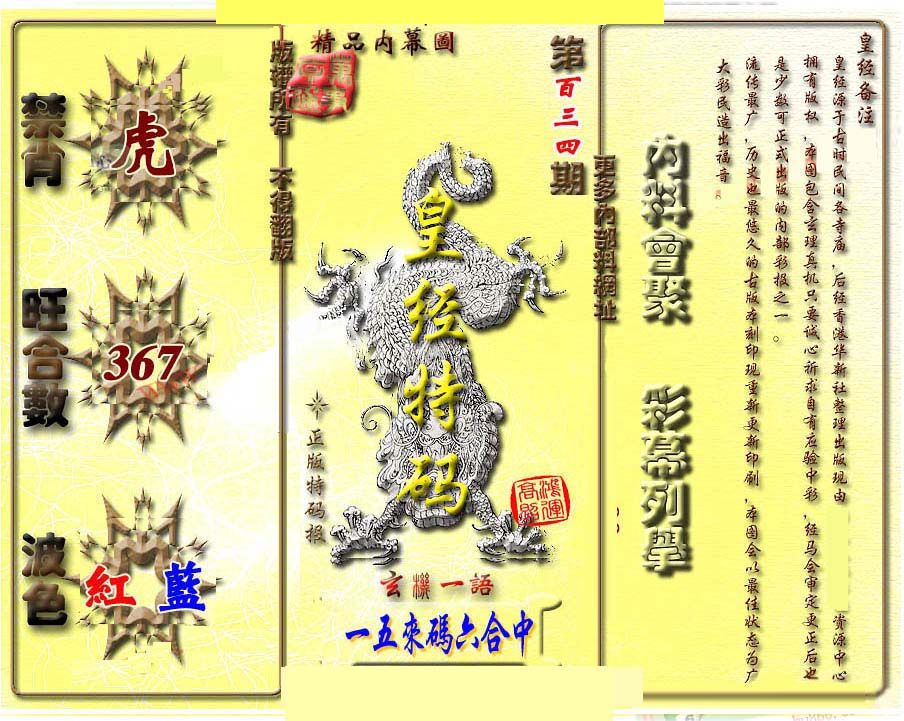 精品内幕圖
第百三四期
版權所有 不得翻版
更多内部料網址
禁肖
虎
旺合數
367
波色
紅 藍
皇经特码
正版特码报
鴻運
高照
玄機一語
一五來碼六合中
内料會聚
彩幕列擧
皇经备注
皇经源于古时民间各寺庙，后经香港华新社整理出版现由 资源中心
拥有版权，本图包含玄理真机只要诚心祈求自有应验中彩，经马会审定更正后也
是少数可正式出版的内部彩报之一。
流传最广，历史也最悠久的古版本刻印现重新更新印刷，本图会以最佳状态为广
大彩民造出福音